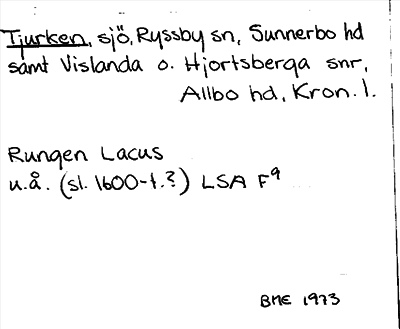 Tjurken, sjö, Ryssby sn, Sunnerbo hd
samt Vislanda o. Hjortsberga snr,
Allbo hd, Kron. l.
Rungen Lacus
u.å. (sl. 1600-t.?) LSA F9
BME 1973